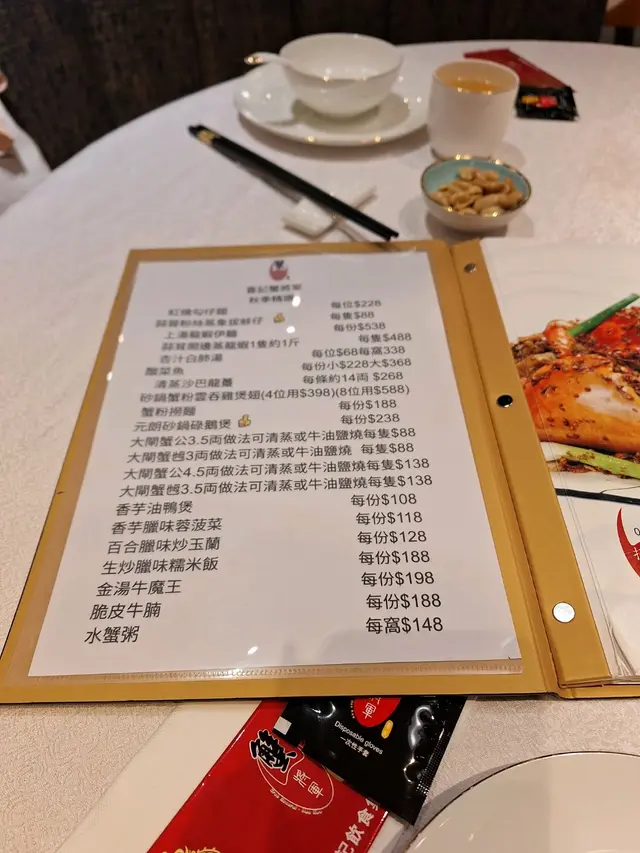 喜記蟹將軍
秋季精選
紅燒勾仔翅 每位$228
蒜蓉粉絲蒸象拔蚌仔 每隻$88
上湯龍蝦伊麵 每份$538
蒜茸開邊蒸龍蝦1隻約1斤 每隻$488
杏汁白肺湯 每位$68每窩338
酸菜魚 每份小$228大$368
清蒸沙巴龍躉 每條約14両 $268
砂鍋蟹粉雲吞雞煲翅(4位用$398)(8位用$588)
蟹粉撈麵 每份$188
元朗砂鍋碌鵝煲 每份$238
大閘蟹公3.5両做法可清蒸或牛油鹽燒每隻$88
大閘蟹乸3両做法可清蒸或牛油鹽燒 每隻$88
大閘蟹公4.5両做法可清蒸或牛油鹽燒每隻$138
大閘蟹乸3.5両做法可清蒸或牛油鹽燒每隻$138
香芋油鴨煲 每份$108
香芋臘味蓉菠菜 每份$118
百合臘味炒玉蘭 每份$128
生炒臘味糯米飯 每份$188
金湯牛魔王 每份$198
脆皮牛腩 每份$188
水蟹粥 每窩$148
將軍
Disposable gloves
一次性手套
蟹
將軍
記飲食